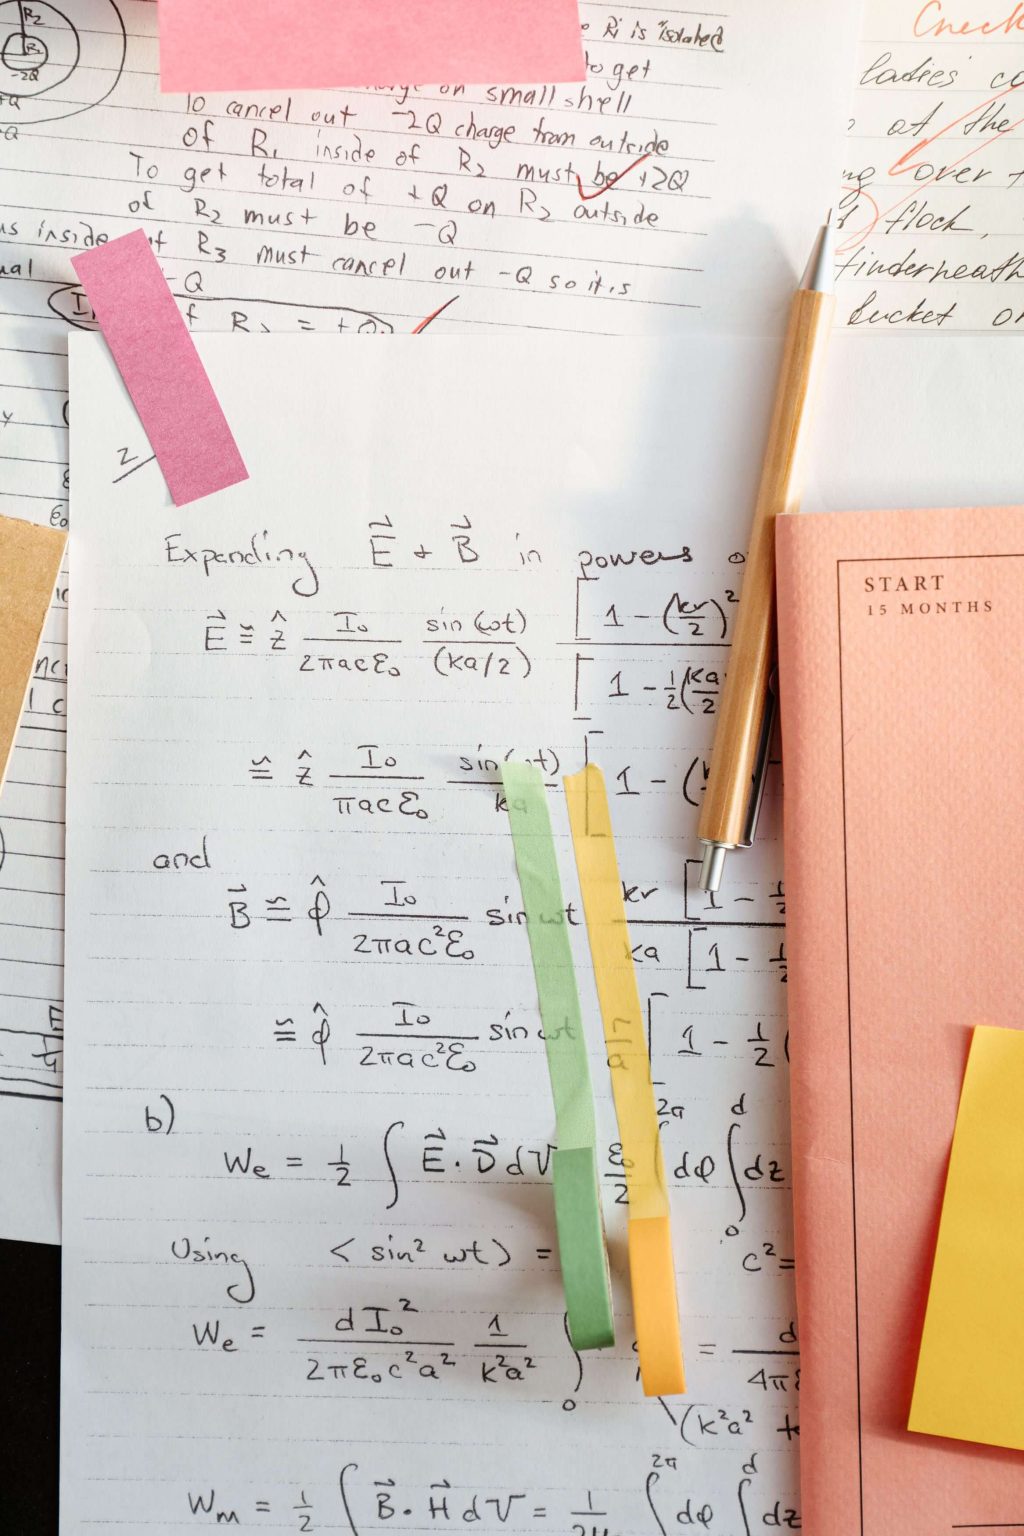 R₂
R₁
-2Q
+Q
-Q
Ri is "isolated
to get
on small shell
To cancel out -2Q charge from outside
of R₁ inside of R₂ must be +2Q
To get total of +Q on R₂ outside
of R₂ must be -Q
inside of R₃ must cancel out -Q so it is
-Q
f R₂ = +Q
Check
ladies'
at the
over
flock,
bucket
2
Expanding E⃗ + B⃗ in powers
E⃗ ≅ ẑ I₀/(2πacε₀) sin(ωt)/(ka/2) [1 - (kr/2)² / [1 - ½(ka/2
≅ ẑ I₀/(πacε₀) sin(ωt)/ka [1 - (
and
B⃗ ≅ φ̂ I₀/(2πac²ε₀) sin ωt kr [1 - ½ / ka [1 - ½
≅ φ̂ I₀/(2πac²ε₀) sin ωt [1 - ½(
b)
We = ½ ∫ E⃗ · D⃗ dV ε₀/2 ∫ 2π dφ ∫₀ᵈ dz
Using ⟨ sin² ωt ⟩ = c² =
We = d I₀²/(2πε₀c²a²) 1/(k²a²) ∫₀ = d/4π
(k²a²
Wm = ½ ∫ B⃗ · H⃗ dV = 1/2μ ∫ 2π dφ ∫ d dz
START
15 MONTHS